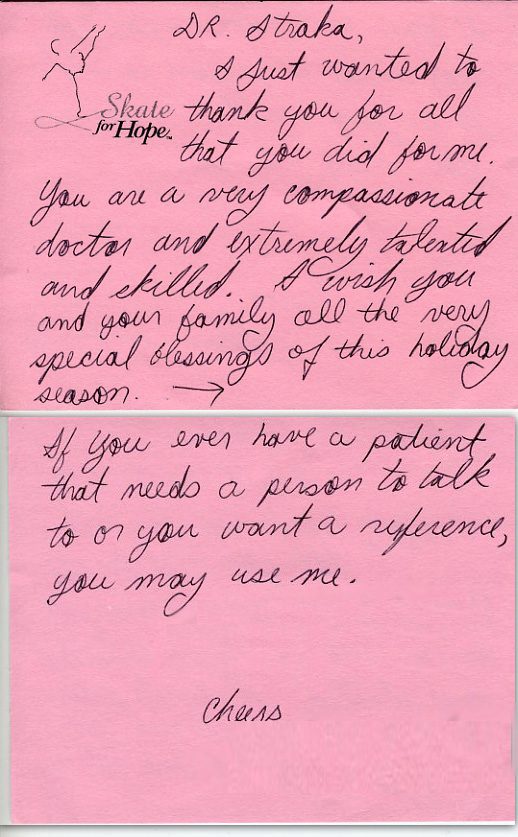 DR. Straka,
I just wanted to
Skate
for Hope™
thank you for all
that you did for me.
You are a very compassionate
doctor and extremely talented
and skilled. I wish you
and your family all the very
special blessings of this holiday
season. →
If you ever have a patient
that needs a person to talk
to or you want a reference,
you may use me.
Cheers